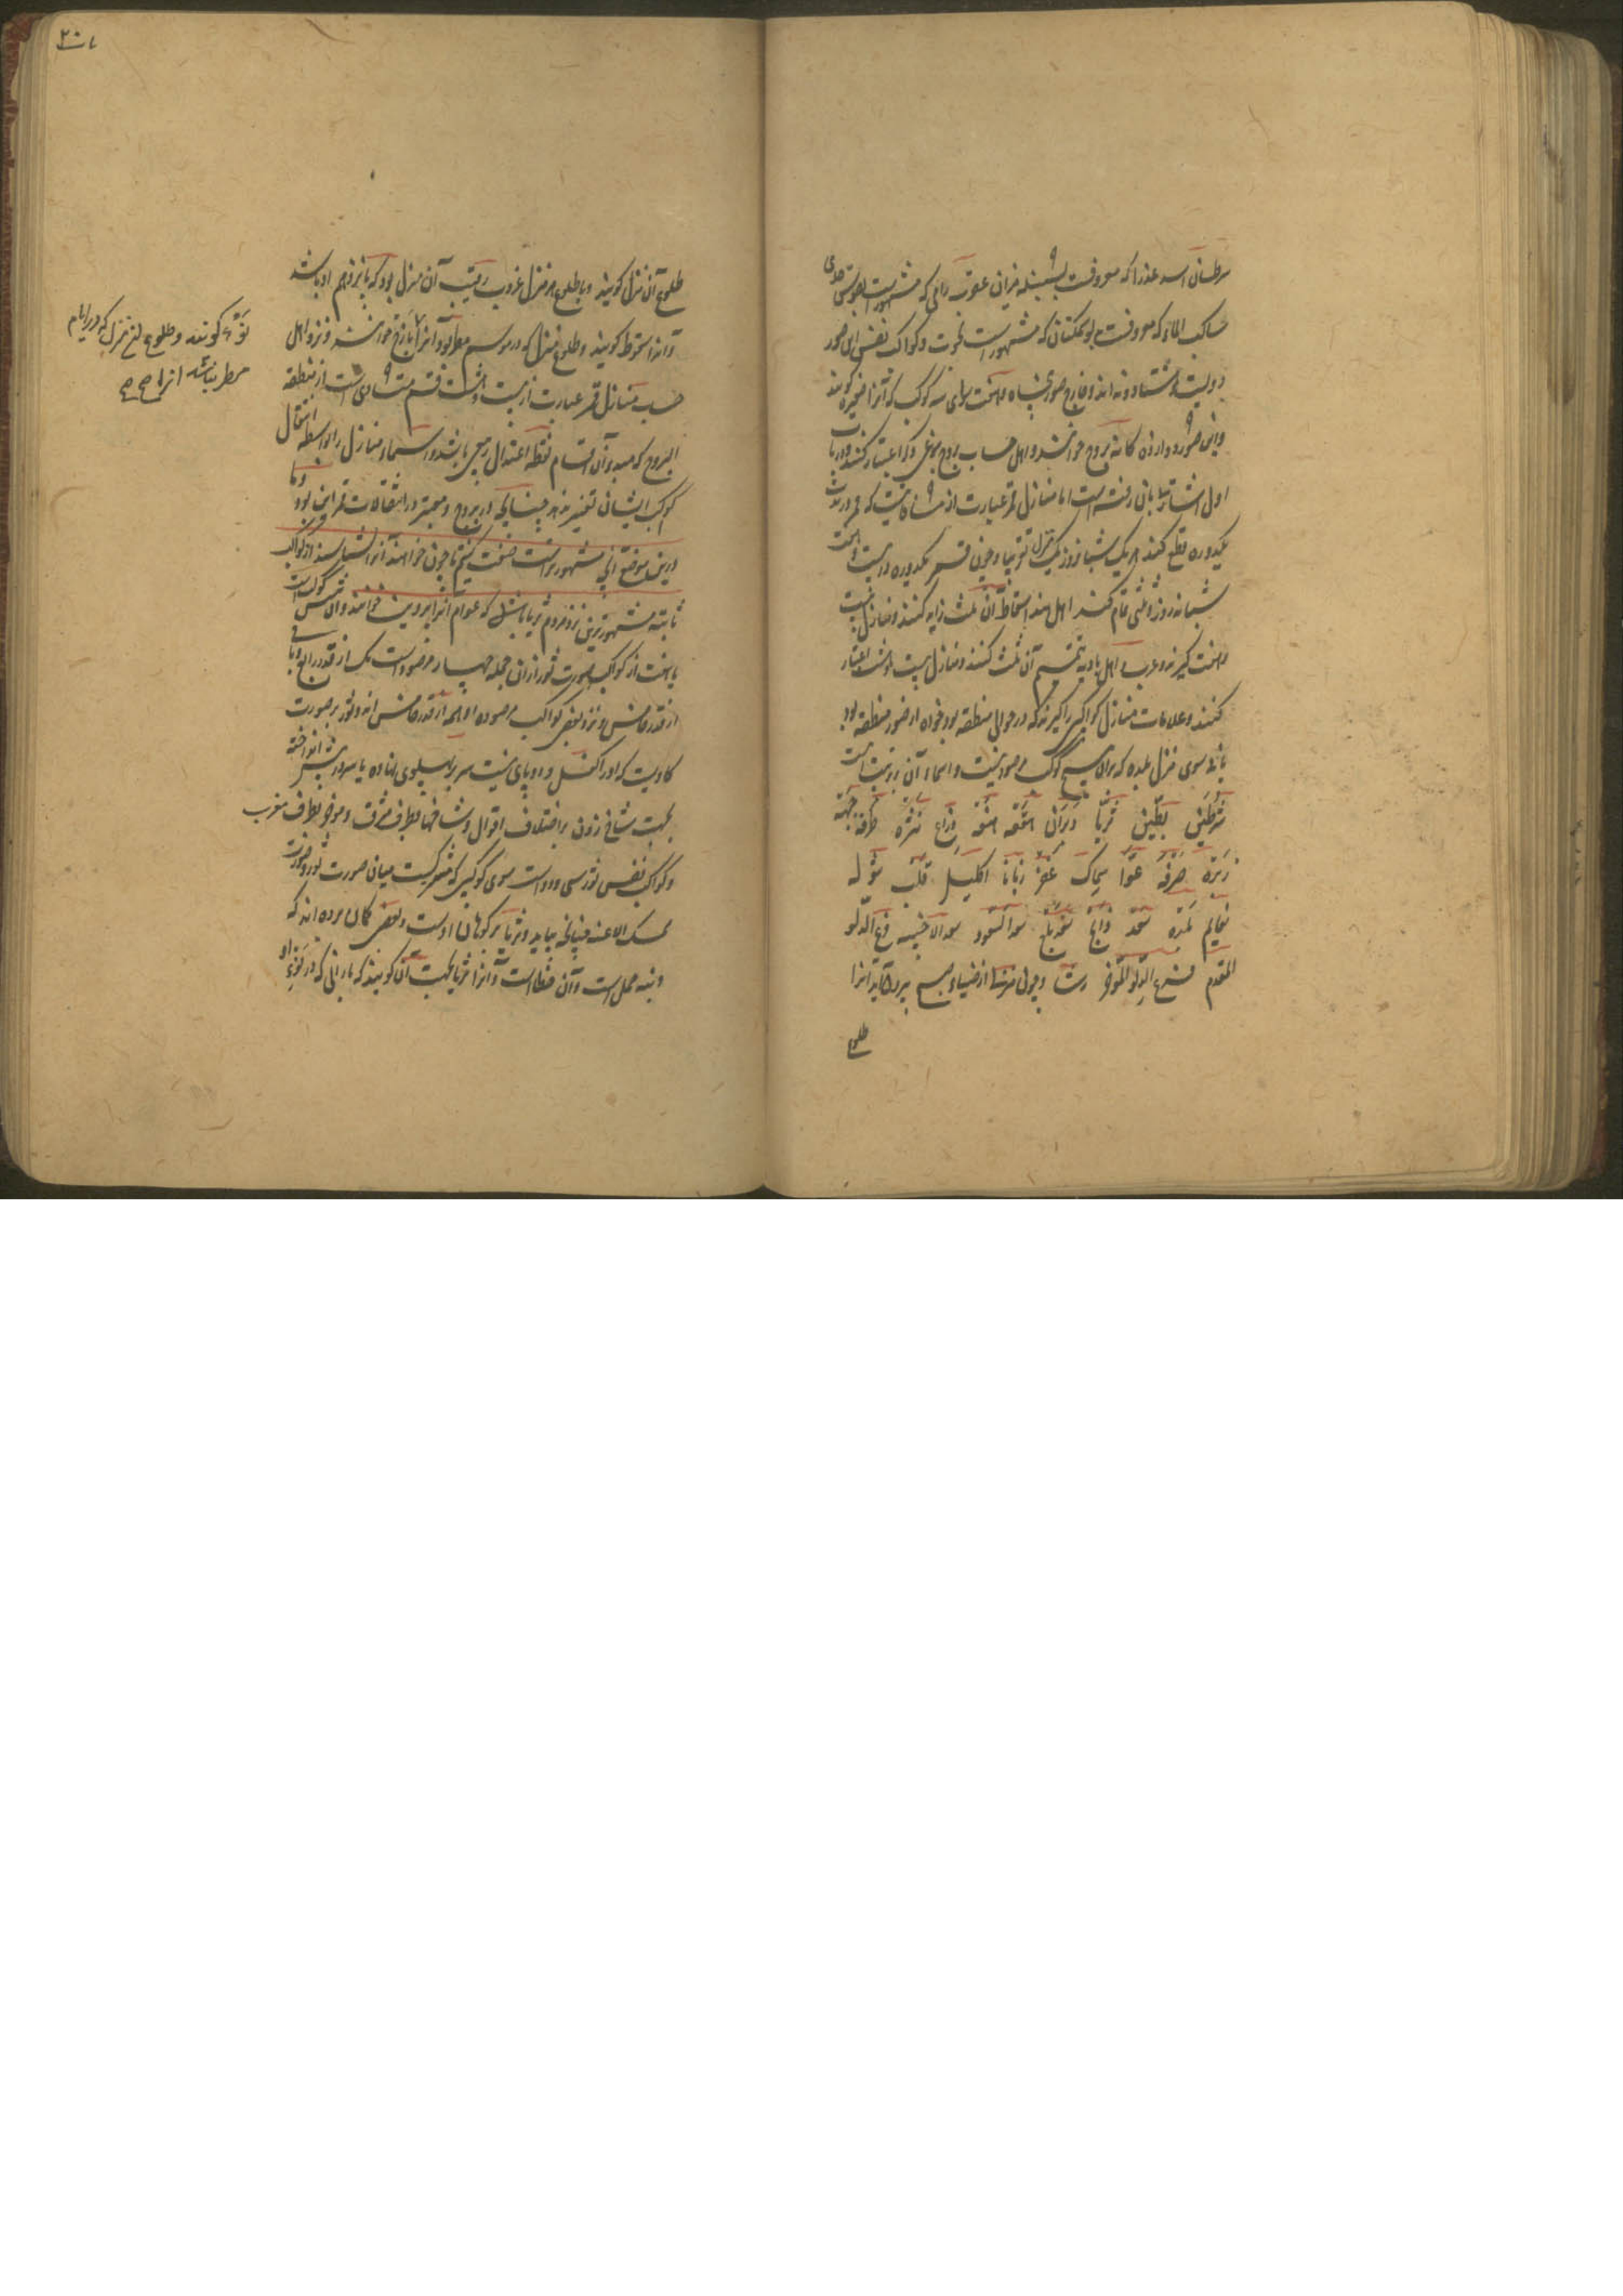 سرطان اسد عذرا که معروفست بسنبله میزان عقرب رامی که مشهورست بقوس جدی
ساکب الماء که معروفست بدلو سمکتان که مشهور است بحوت و کواکب نفس این صور
دویست و هشتاد و نه اند و خارج صور پنجاه و هفت سوای سه کوکب که آنرا ضفیره کویند
و این صور دوازده کانه بروج خوانند و اهل حساب بروج بنوعی دیکر اعتبار کنند و در باب
اول اشارتی بآن رفته است اما منازل قمر عبارت از مسافاتیست که قمر در مدت
یکدوره قطع کند هر یک شبانروز یک منزل تقریبا و چون قمر یکدوره در بیست و هفت
شبانه روز و ثلثی تمام کند اهل هند اسقاط آن ثلث زاید کنند و منازل بیست
و هفت کیرند و عرب و اهل بادیه تتمیم آن ثلث کنند و منازل بیست و هشت اعتبار
کنند و علامات منازل کواکبی را کیرند که در حوالی منطقه بود خواه از صور منطقه بود
یا نه سوی منزل بلده که برای هیچ کوکب مرصود نیست و اسماء آن بترتیب اینست
شرطین بطین ثریا دبران هقعه هنعه ذراع نثره طرفه جبهه
زبره صرفه عوا سماک غفر زبانا اکلیل قلب شوله
نعایم بلده سعد ذابح سعد بلع سعد السعود سعد الاخبیه فرغ الدلو
المقدم فرغ الدلو المؤخر رشا و چون منزلها از ضیاء صبح بیرون آید آنرا
طلوع
۲۰۷
طلوع آن منزل کویند و با طلوع هر منزل غروب رقیب آن منزل بود که پانزدهم او باشد
و آنرا سقوط کویند و طلوع منزل که در موسم مطر بود آنرا بارح خوانند و نزد اهل
حساب منازل قمر عبارت از بیست و هشت قسم متساوی است از منطقه
البروج که مبدء آن اقسام نقطه اعتدال ربیعی باشد و اسماء منازل را بواسطه انتقال
کوکب ایشان تغییر ندهند چنانچه در بروج و معتبر در انتقالات قمر این بود و ما
درین موضع آنچه مشهورتر است صفت کنیم تا چون خواهند آنرا بشناسند از کواکب
ثابته مشهورترین نزد مردم ثریا باشد که عوام آنرا پروین خوانند و آن شش کوکب است
یا هفت از کواکب صورت ثور از آن جمله چهار مرصود است یک از قدر رابع و باقی
از قدر خامس و نزد بعضی کواکب مرصوده او همه از قدر خامس اند و ثور بر صورت
کاویست که او را کفل و دو پای نیست سر بر پهلوی نهاده یا سر در پیش انداخته
بجهت شاخ زدن بر اختلاف اقوال و شاخها بطرف مشرق و مؤخر بطرف مغرب
و کواکب نفس ثور سی و دو است سوی کوکبی که مشترکست میان صورت ثور و صورت
ممسک الاعنه چنانچه بیاید و ثریا بر کوهان اوست و بعضی کمان برده اند که
دنبه حمل است و آن خطا است و آنرا ثریا بجهت آن کویند که بارانی که در نوء او
نوء کویند و طلوع این منزل که در ایام
مطر نباشد آنرا صح صح